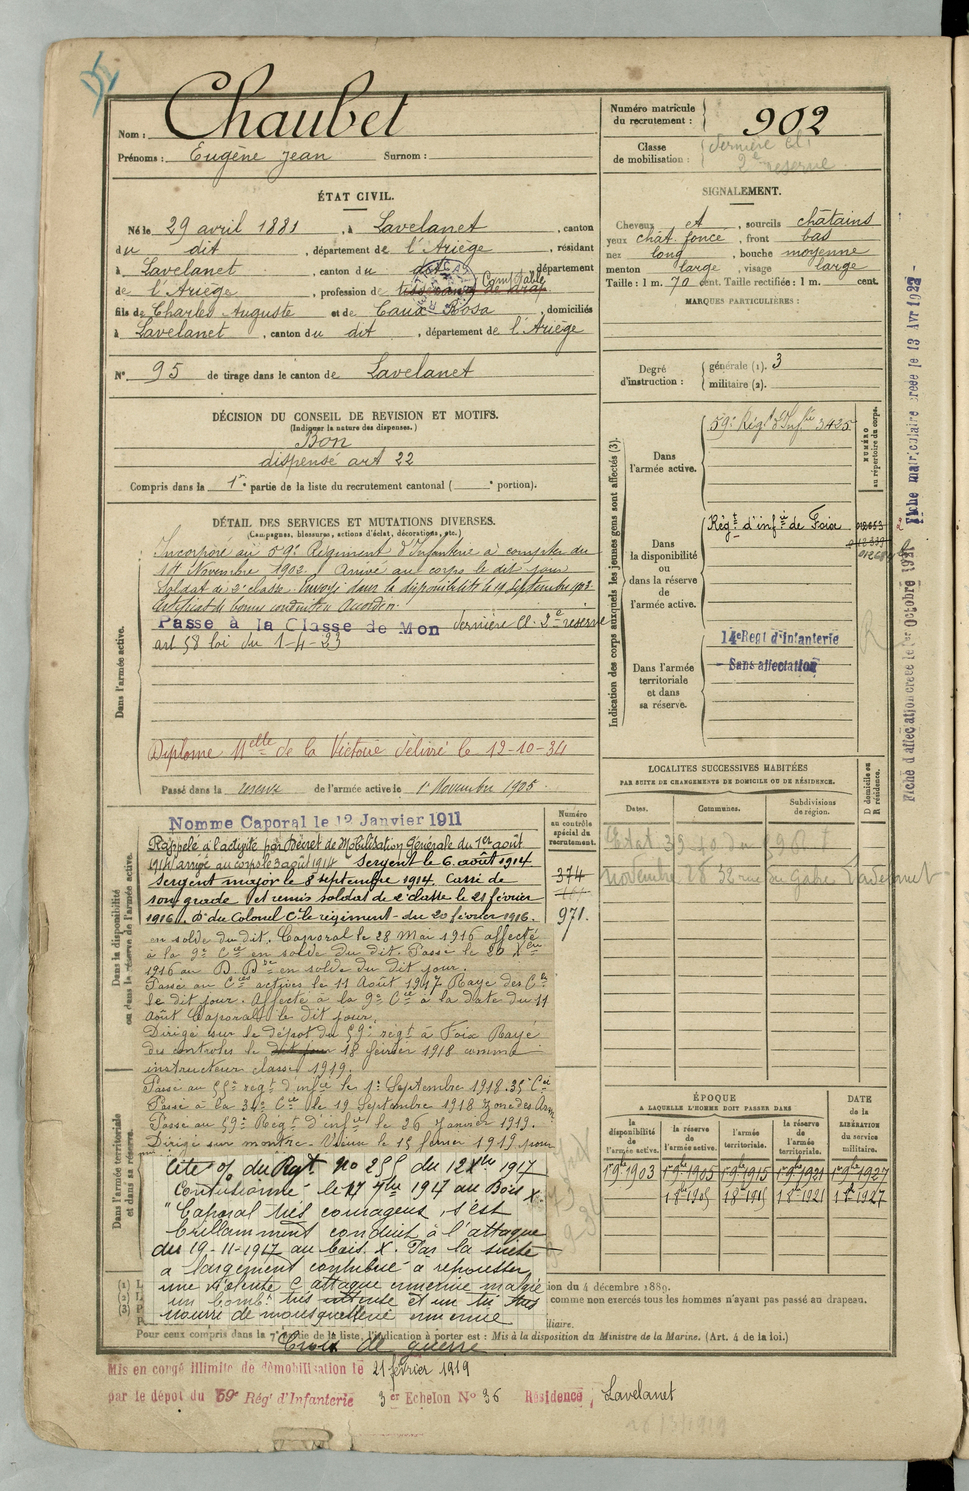 Nom : Chaubet
Prénoms : Eugène Jean Surnom :
ÉTAT CIVIL.
Né le 29 avril 1881, à Lavelanet, canton
du dit, département de l'Ariège, résidant
à Lavelanet, canton du dit, département
de l'Ariège, profession de tisserand de drap Comptable
fils de Charles Auguste et de Caux Rosa, domiciliés
à Lavelanet, canton du dit, département de l'Ariège
N° 95 de tirage dans le canton de Lavelanet
DÉCISION DU CONSEIL DE REVISION ET MOTIFS.
(Indiquer la nature des dispenses.)
Bon
dispensé art 22
Compris dans la 1re partie de la liste du recrutement cantonal ( e portion).
DÉTAIL DES SERVICES ET MUTATIONS DIVERSES.
(Campagnes, blessures, actions d'éclat, décorations, etc.)
Dans l'armée active.
Incorporé au 59e Régiment d'Infanterie à compter du
14 Novembre 1902. Arrivé au corps le dit jour
Soldat de 2e classe. Envoyé dans la disponibilité le 19 septembre 1903
Certificat de bonne conduite Accordé.
Passé à la Classe de Mon dernière Cl. 2e réserve
art 58 loi du 1-4-23
Diplome Melle de la Victoire délivré le 12-10-34
Passé dans la réserve de l'armée active le 1r Novembre 1905
Dans la disponibilité
ou dans la réserve de l'armée active.
Numéro au contrôle spécial du recrutement.
374
971.
Nommé Caporal le 12 Janvier 1911
Rappelé à l'activité par Décret de Mobilisation Générale du 1er août
1914 arrivé au corps le 3 août 1914 Sergent le 6 août 1914
Sergent major le 8 septembre 1914. Cassé de
son grade et remis soldat de 2e classe le 21 février
1916. D° du Colonel Ct le régiment du 20 février 1916.
en solde du dit. Caporal le 28 Mai 1916 affecté
à la 9e Cie en solde du dit. Passé le 20 Xbre
1916 au D.D. en solde du dit jour.
Passé au Cies actives le 11 Août 1917 Rayé des Cles
le dit jour. Affecté à la 9e Cie à la date du 11
Août Caporal le dit jour.
Dirigé sur le dépot du 59e régt à Foix Rayé
des controles le dit jour 18 février 1918 comme
instructeur classe 1919.
Passé au 59e régt d'infie le 1er Septembre 1918. 35e Cie
Passé à la 34e Cie le 19 Septembre 1918 zone des Arm
Passé au 59e Régt d'infie le 26 Janvier 1919.
Dirigé sur le 15 février 1919 pour
Dans l'armée territoriale
et dans sa réserve.
Cité o/ du Regt no 255 du 12 Xbre 1917
le 17 9bre 1917 au Bois X.
"Caporal très courageux, s'est
brillamment conduit à l'attaque
du 19-11-1917 au bois X. Par la suite
a largement contribué à repousser
une violente c. attaque ennemie malgré
un bombt très et un tir très
nourri de mousqueterie ennemie
Croix de guerre
(1)
(2)
(3)
ion du 4 décembre 1889.
comme non exercés tous les hommes n'ayant pas passé au drapeau.
iliaire.
Pour ceux compris dans la 7e partie de la liste, l'indication à porter est : Mis à la disposition du Ministre de la Marine. (Art. 4 de la loi.)
Mis en congé illimité de démobilisation le 21 février 1919
par le dépot du 59e Rég' d'Infanterie 3er Echelon N° 36 Résidence, Lavelanet
Numéro matricule du recrutement : 902
Classe de mobilisation : dernière Cl. 2e réserve
SIGNALEMENT.
Cheveux et, sourcils châtains
yeux chât. foncé, front bas
nez long, bouche moyenne
menton large, visage large
Taille : 1 m. 70 cent. Taille rectifiée : 1 m. cent.
MARQUES PARTICULIÈRES :
Degré d'instruction : générale (1). 3
militaire (2).
Indication des corps auxquels les jeunes gens sont affectés (3).
NUMÉRO au répertoire du corps.
Dans l'armée active. 59e Régt d'Infie 3425
Dans la disponibilité ou dans la réserve de l'armée active. Régt d'infie de Foix
Dans l'armée territoriale et dans sa réserve.
14e Regt d'Infanterie
Sans affectation
Fiche d'affectation créée le 1er Octobre 1921
Fiche matriculaire créée le 13 Avr 1922
LOCALITÉS SUCCESSIVES HABITÉES
PAR SUITE DE CHANGEMENTS DE DOMICILE OU DE RÉSIDENCE.
D domicile ou R résidence.
Dates. Communes. Subdivisions de région.
novembre 28 32 rue du Gabre Lavelanet
ÉPOQUE
A LAQUELLE L'HOMME DOIT PASSER DANS
DATE de la LIBÉRATION du service militaire.
la disponibilité de l'armée active. la réserve de l'armée active. l'armée territoriale. la réserve de l'armée territoriale.
1r 9bre 1903 1r 9bre 1905 1r 9bre 1915 1r 9bre 1921 1r 9bre 1927
1 8bre 1905 1 8bre 1915 1 8bre 1921 1 8bre 1927